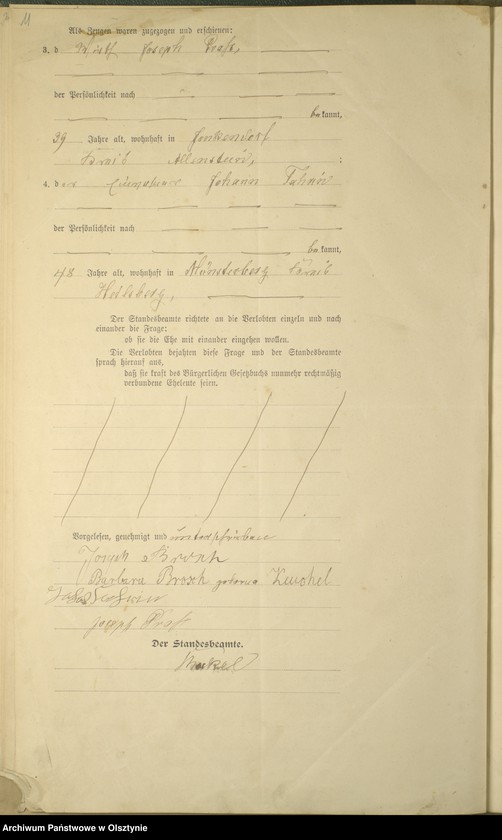 11
Als Zeugen waren zugezogen und erschienen:
3. d Joseph
der Persönlichkeit nach
be kannt,
39 Jahre alt, wohnhaft in Jonkendorf
Kreis Allenstein,
;
4. der Johann
der Persönlichkeit nach
be kannt,
48 Jahre alt, wohnhaft in Münsterberg Kreis
Heilsberg,
Der Standesbeamte richtete an die Verlobten einzeln und nach
einander die Frage:
ob sie die Ehe mit einander eingehen wollen.
Die Verlobten bejahten diese Frage und der Standesbeamte
sprach hierauf aus,
daß sie kraft des Bürgerlichen Gesetzbuchs nunmehr rechtmäßig
verbundene Eheleute seien.
Vorgelesen, genehmigt und unterschrieben
Joseph Brosch
Barbara Brosch geborene
Joseph
Der Standesbeamte.
Archiwum Państwowe w Olsztynie